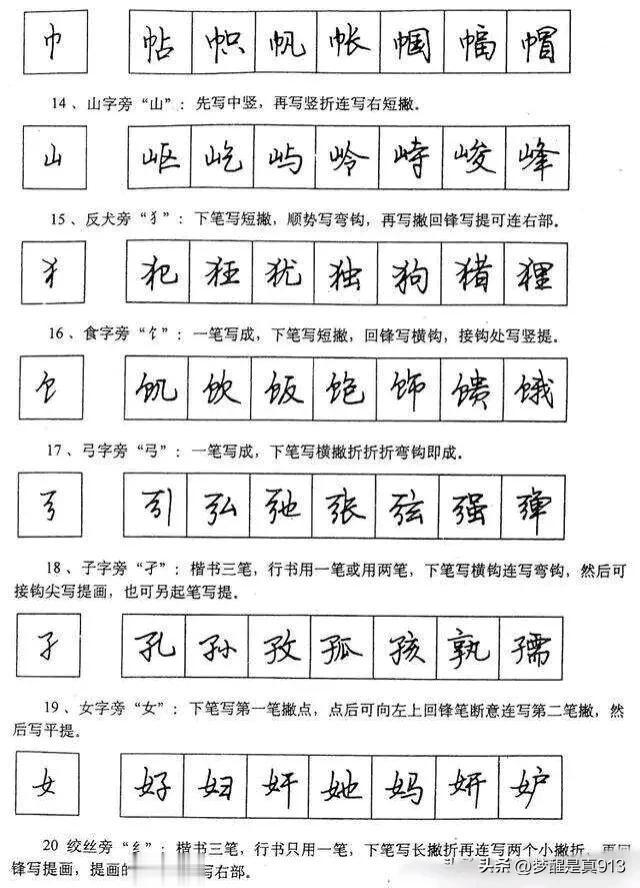 巾 帖 帜 帆 帐 帼 幅 帽
14、山字旁“山”：先写中竖，再写竖折连写右短撇。
山 岖 屹 屿 岭 峙 峻 峰
15、反犬旁“犭”：下笔写短撇，顺势写弯钩，再写撇回锋写提可连右部。
犭 犯 狂 犹 独 狗 猪 狸
16、食字旁“饣”：一笔写成，下笔写短撇，回锋写横钩，接钩处写竖提。
饣 饥 饮 饭 饱 饰 馈 饿
17、弓字旁“弓”：一笔写成，下笔写横撇折折折弯钩即成。
弓 引 弘 弛 张 弦 强 弹
18、子字旁“孑”：楷书三笔，行书用一笔或用两笔，下笔写横钩连写弯钩，然后可
接钩尖写提画，也可另起笔写提。
孑 孔 孙 孜 孤 孩 孰 孺
19、女字旁“女”：下笔写第一笔撇点，点后可向左上回锋笔断意连写第二笔撇，然
后写平提。
女 好 妇 奸 她 妈 妍 妒
20 绞丝旁“纟”：楷书三笔，行书只用一笔，下笔写长撇折再连写两个小撇折，再回
锋写提画，提画的 写右部。
头条 @梦醒是真913